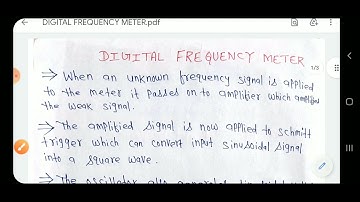 DIGITAL FREQUENCY METER.pdf
DIGITAL FREQUENCY METER
1/3
⇒ When an unknown frequency signal is applied
to the meter it passed on to amplifier which amplifies
the weak signal.
⇒ The amplified signal is now applied to schmitt
trigger which can convert input sinusoidal signal
into a square wave.
⇒ The oscillator also